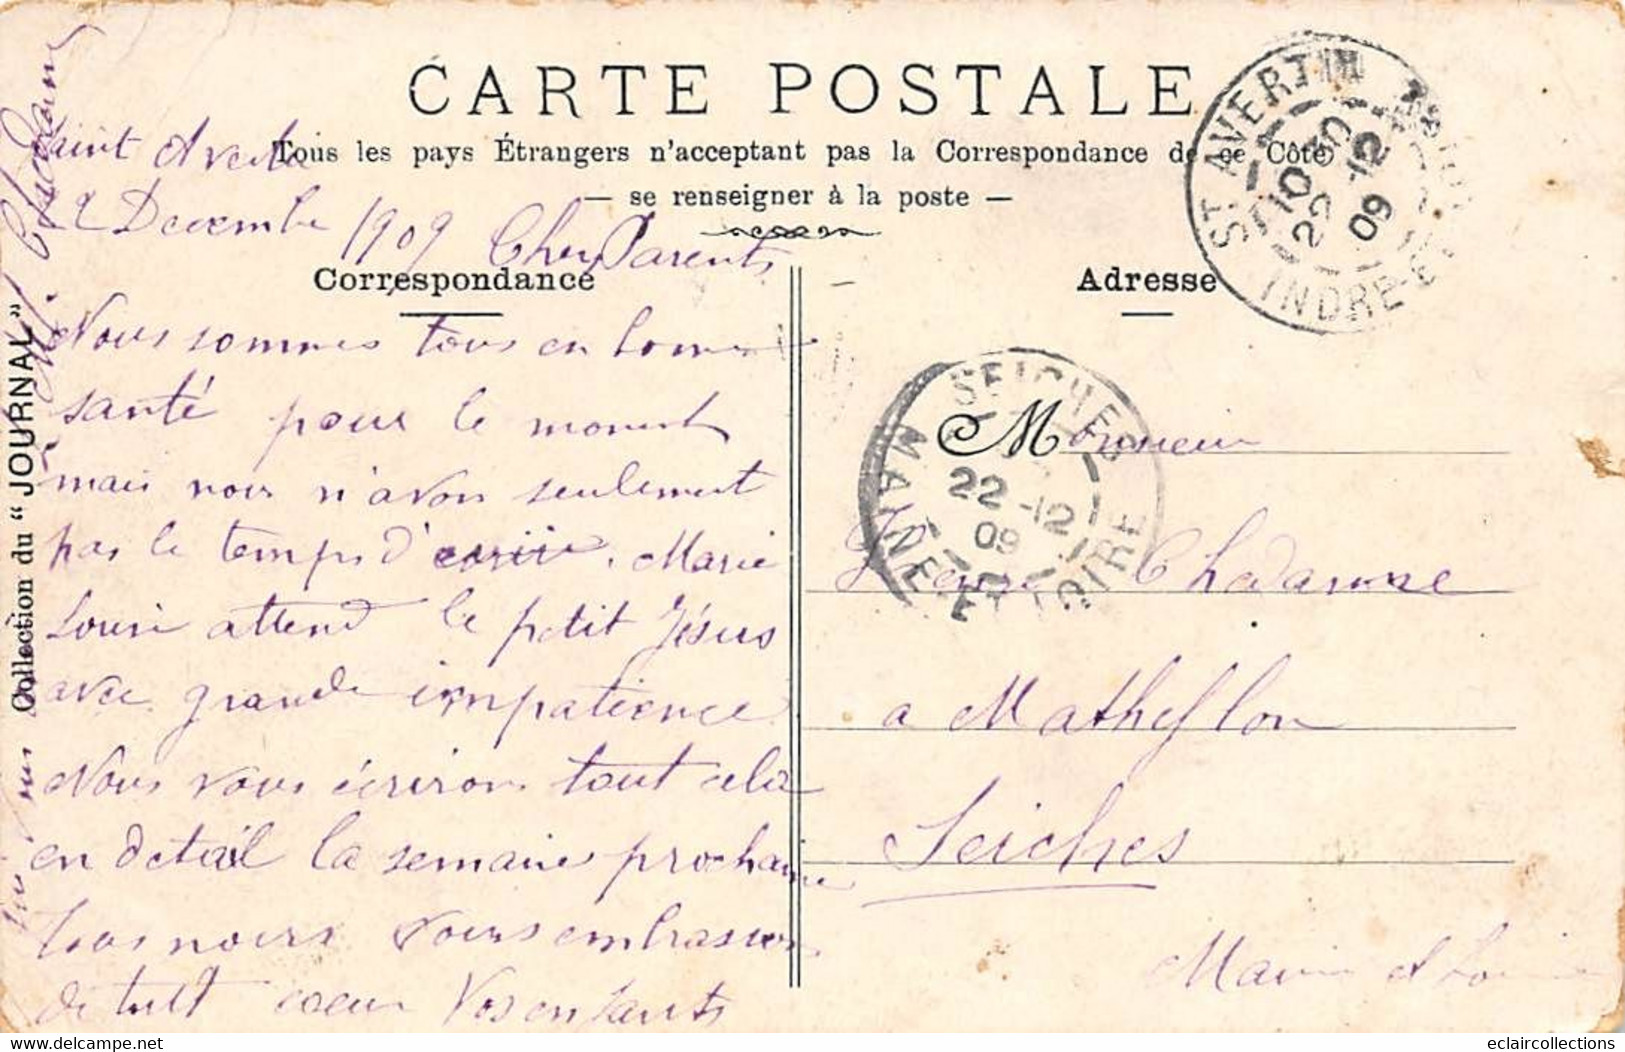 CARTE POSTALE
Tous les pays Étrangers n'acceptent pas la Correspondance de ce Côté
— se renseigner à la poste —
Correspondance
Adresse
Collection du " JOURNAL "
ST AVERTIN
10 30
22 -12
09
INDRE-ET
SEICHES
22 -12
09
MAINE ET LOIRE
Saint Avertin
2 Decembre 1909 Cher Parents
Nous sommes tous en bonne
santé pour le moment
mais nous n'avon seulement
pas le temps d'ecrire. Marie
Louise attend le petit Jésus
avec grande impatience
Nous vous écrirons tout cela
en detail la semaine prochaine
tous nous vous embrassons
de tout coeur Vos enfants
Chedanne
Monsieur
Chedanne
a Matheflon
Seiches
Maine et Loire
eclaircollections
delcampe.net